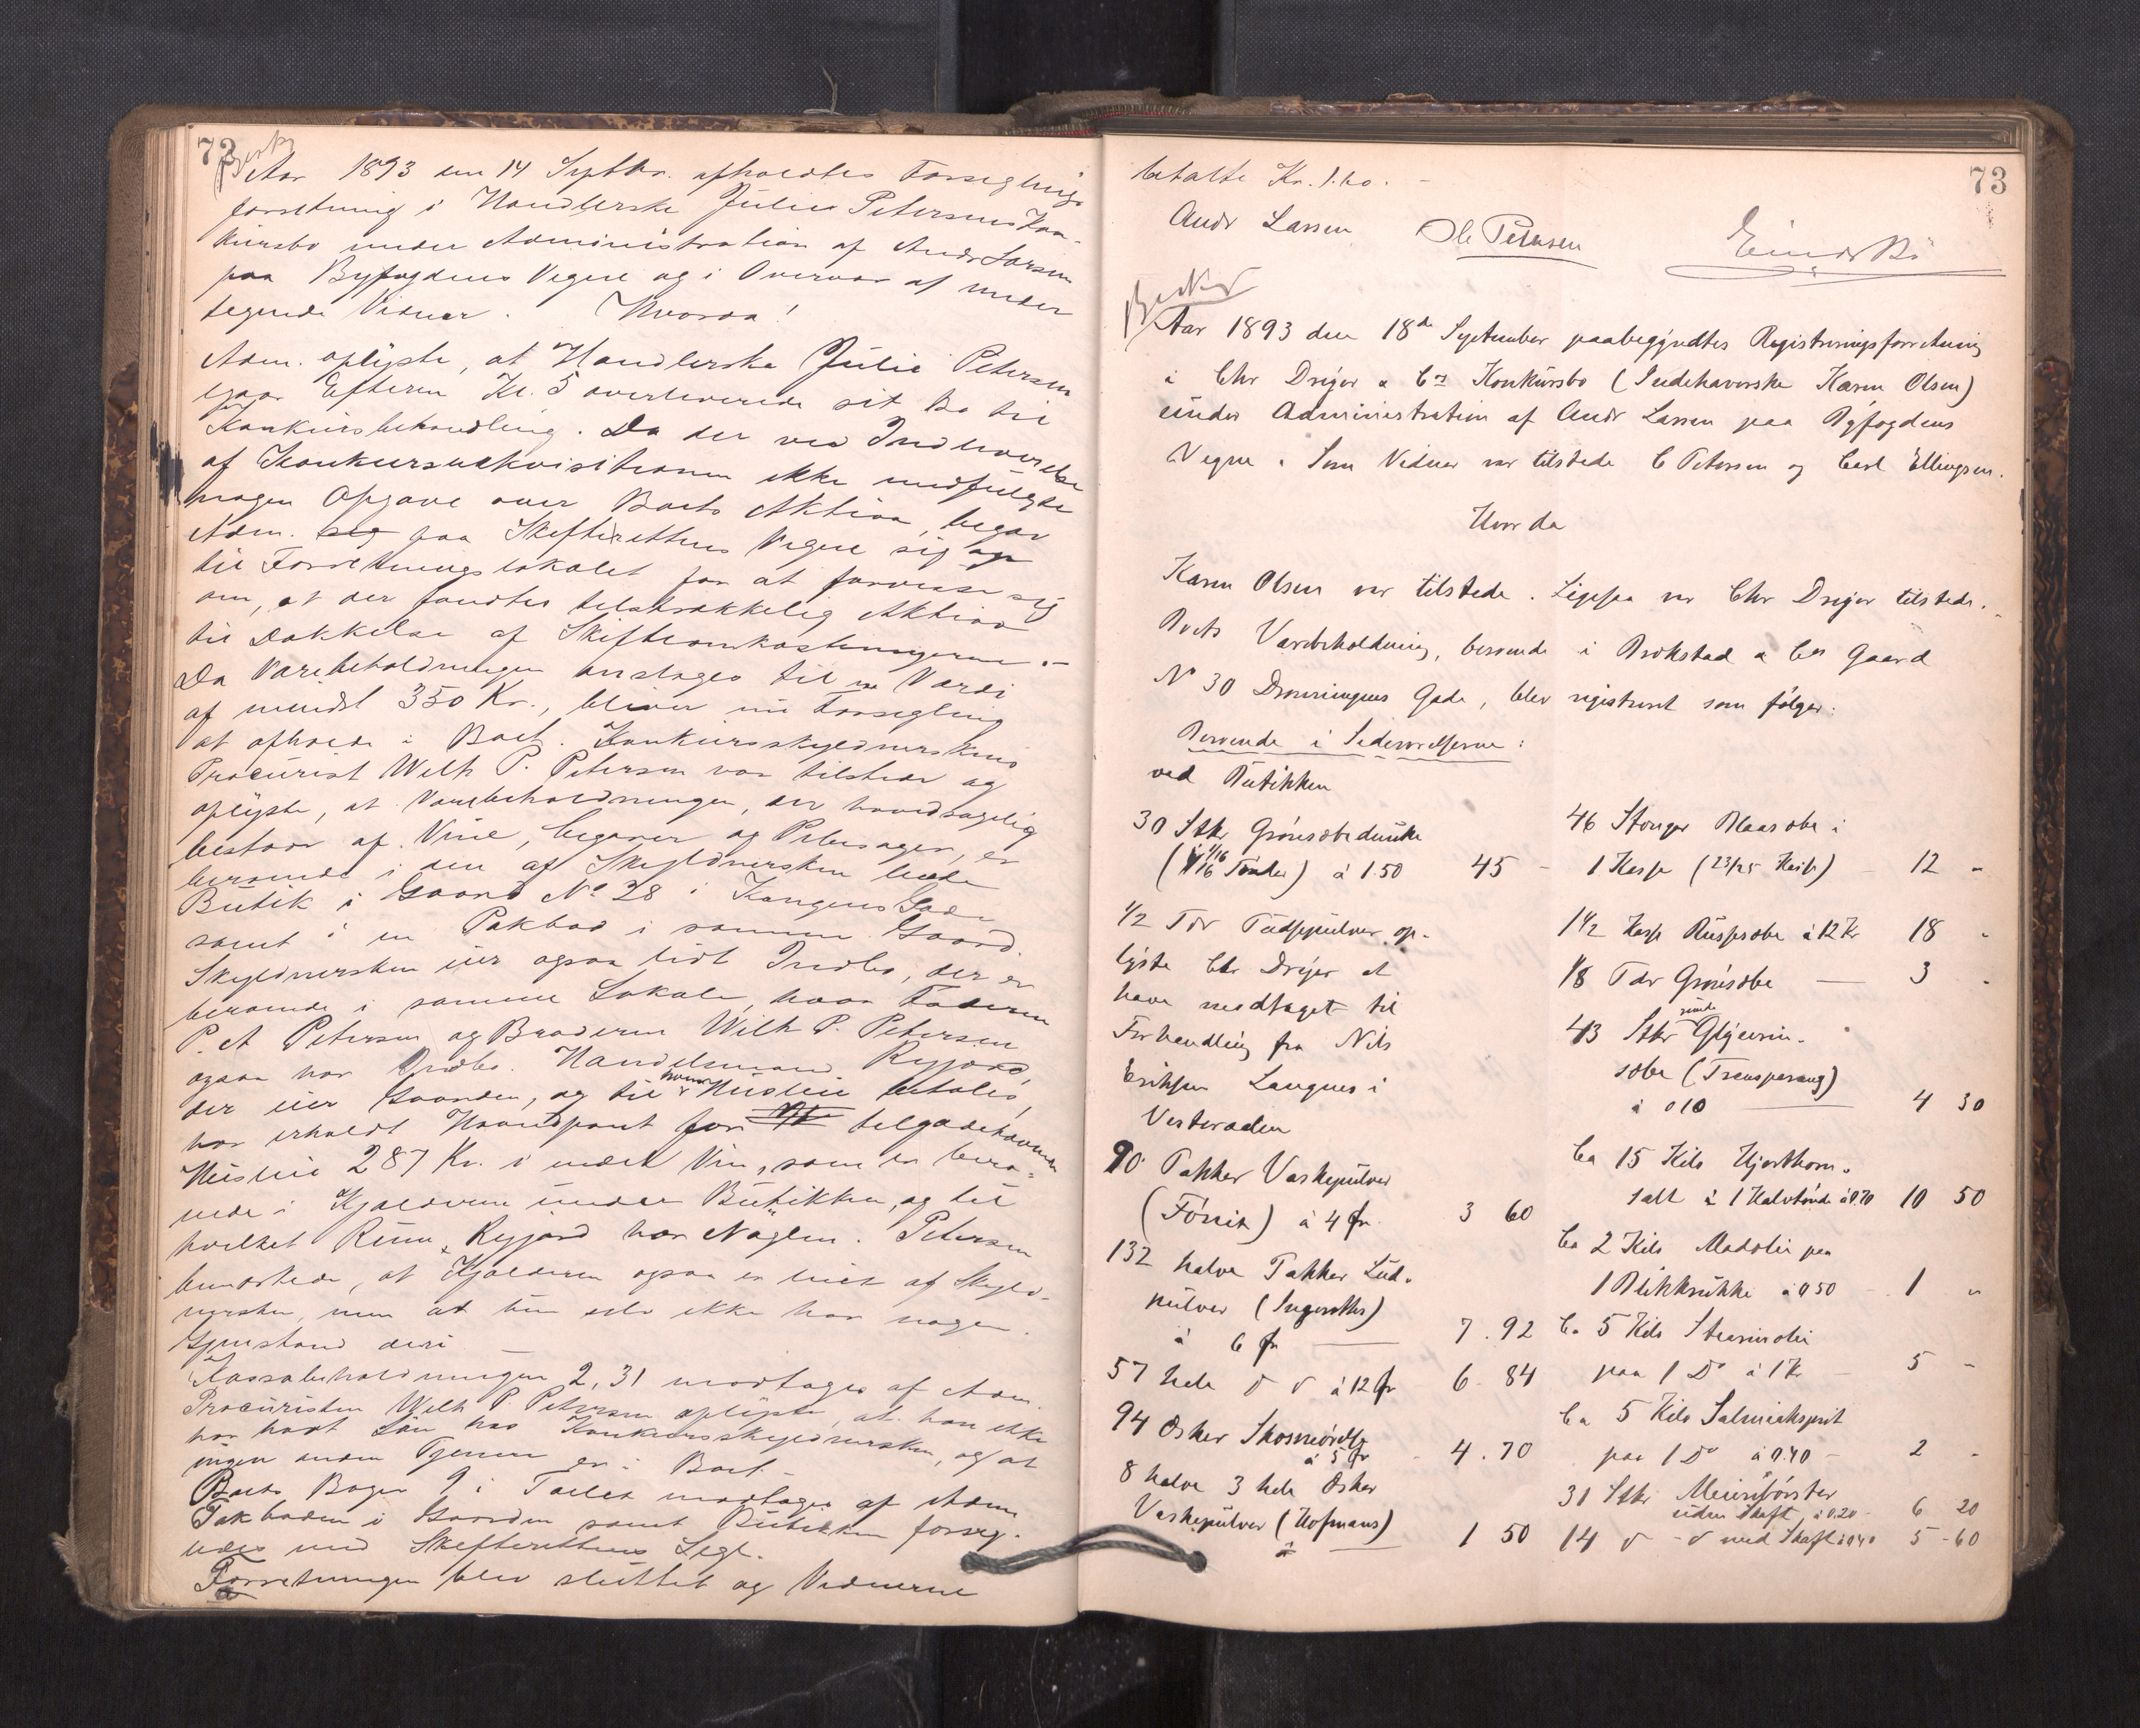 72
Aar 1893 den 14 Septbr. afholdtes Forseglings
forretning i Handlerske Julie Petersens Kon-
kursbo under Administration af Andr Larsen
paa Byfogdens Vegne og i Overvær af under
tegnede Vidner. Hvorda!
Adm. oplyste, at Handlerske Julie Petersen
igaar Efterm Kl. 5 overleverede sit Bo til
Konkursbehandling. Da der ved Indleverelse
af Konkursrekvisitionen ikke medfulgte
nogen Opgave over Boets Aktiva, begav
Adm. paa Skifterettens Vegne sig op
til Forretningslokalet for at forvisse sig
om, at der fandtes tilstrækkelig Aktiva
til Dækkelse af Skifteomkostningerne.-
Da Varebeholdningen ansloges til en Værdi
af mindst 350 Kr., bliver nu Forsegling
at afholde i Boet. Konkursskyldnerskens
Procurist Wilh P. Petersen var tilstede og
oplyste, at Varebeholdningen, der hovedsagelig
bestaar af Vine, Cigarer og Pibesager, er
beroende i den af Skyldnersken leiede
Butik i Gaard No 28 i Kongens Gade
samt i en Pakbod i samme Gaard
Skyldnersken eier ogsaa lidt Indbo, der er
beroende i samme Lokale, hvor Faderen
P. A Petersen og Broderen Wilh P. Petersen
ogsaa har Indbo. Handelsmand Ryjord,
der eier Gaarden, og til hvem Husleie betales,
har erholdt Haandpant for tilgodehavende
Husleie 287 Kr. i endel Vin, som er bero-
ende i Kjælderen under Butikken, og til
hvilket Rum Ryjord har Nøglen. Petersen
bemærkede, at Kjælderen ogsaa er leiet af Skyld-
nersken, men at hun selv ikke har nogen
Gjenstand deri
Kassabeholdningen 2,31 modtoges af Adm.
Procuristen Wilh P. Petersen oplyste, at han ikke
har havt Løn hos Konkursskyldnersken, og at
ingen anden Tjener er i Boet.-
Boets Bøger 9 i Tallet modtoges af Adm
Pakboden i Gaarden samt Butikken forseg-
ledes med Skifterettens Segl.
Forretningen blev sluttet og Vidnerne
73
betalte Kr. 1.60. -
Andr Larsen Ole Petersen
Aar 1893 den 18de September paabegyndtes Registreringsforretning
i Chr Dreyer & Co Konkursbo (Indehaverske Karen Olsen)
under Administration af Andr Larsen paa Byfogdens
Vegne. Som Vidner var tilstede C Petersen og Carl Ellingsen.
Hvor da
Karen Olsen var tilstede. Ligesaa var Chr Dreyer tilstede.
Boets Varebeholdning, beroende i Brokstad & Co Gaard
No 30 Dronningens Gade, blev registreret som følger:
Beroende i Sideværelserne:
ved Butikken
30 Stkr Grønsæbedunke
(1/16 Tønder) à 1.50 45 -
1/2 Tdr Pudsepulver op-
lyste Chr Dreyer at
have modtaget til
Forhandling fra Nils
Eriksen Langnes i
Vesteraalen
90 Pakker Vaskepulver
(Fönix) à 4 Ør. 3 60
132 halve Pakker Lud-
pulver (Ingeniørs)
à 6 Ør 7.92
57 hele d d à 12 Ør 6 84
94 Æsker Skosmørelse
à 5 Ør 4.70
8 halve 3 hele Æsker
Vaskepulver (Hofmans)
à 1 50
46 Stænger Blaasæbe i
1 Kasse (23/25 Kasse) 12 "
1 1/2 Kasse Russesæbe à 12 Kr 18 "
1/8 Tdr Grønsæbe 3 "
43 Stkr runde Glycerin-
sæbe (Transparang)
à 010 4 30
Ca 15 Kilo Hjorthorn-
salt i 1 Halvtønde à 0.70 10 50
Ca 2 Kilo Madolie paa
1 Blikkrukke à 0 50 1 "
Ca 5 Kilo Stearinolie
paa 1 Do à 1 Kr 5 -
Ca 5 Kilo Salmiakspirit
paa 1 Do à 0.40 - 2 -
31 Stkr Meieribørster
uden Skaft, à 0.20 - 6 20
14 d - d med Skaft à 0 40 5 - 60